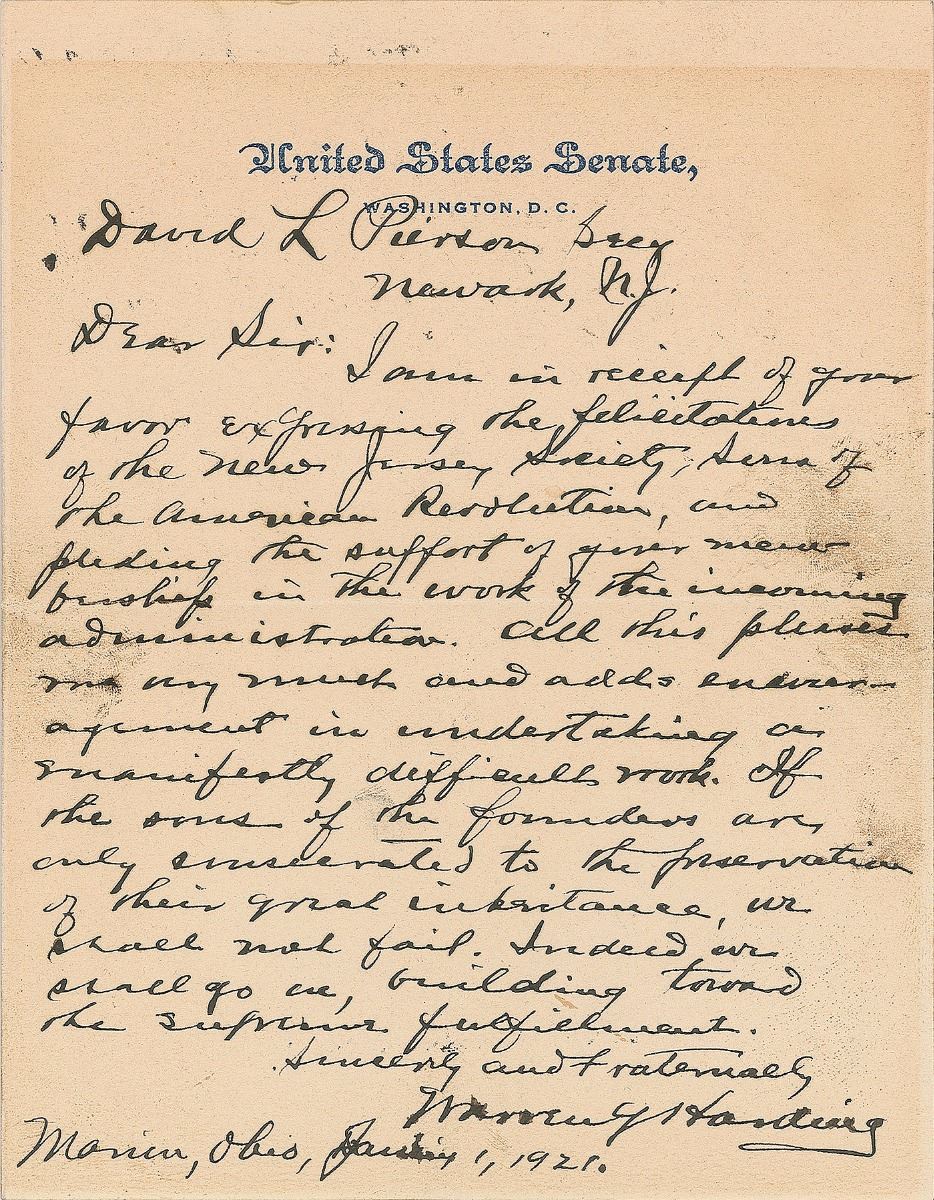 United States Senate,
WASHINGTON, D.C.
David L Pierson Secy
Newark, N.J.
Dear Sir:
I am in receipt of your
favor expressing the felicitations
of the New Jersey Society, Sons of
the American Revolution, and
pleding the support of your mem
bership in the work of the incoming
administration. All this pleases
me very much and adds encour-
agement in undertaking a
manifestly difficult work. If
the sons of the founders are
only consecrated to the preservation
of their great inheritance, we
shall not fail. Indeed we
shall go on, building toward
the supreme fulfillment.
Sincerely and Fraternally
Warren G Harding
Marion, Ohio, January 1, 1921.